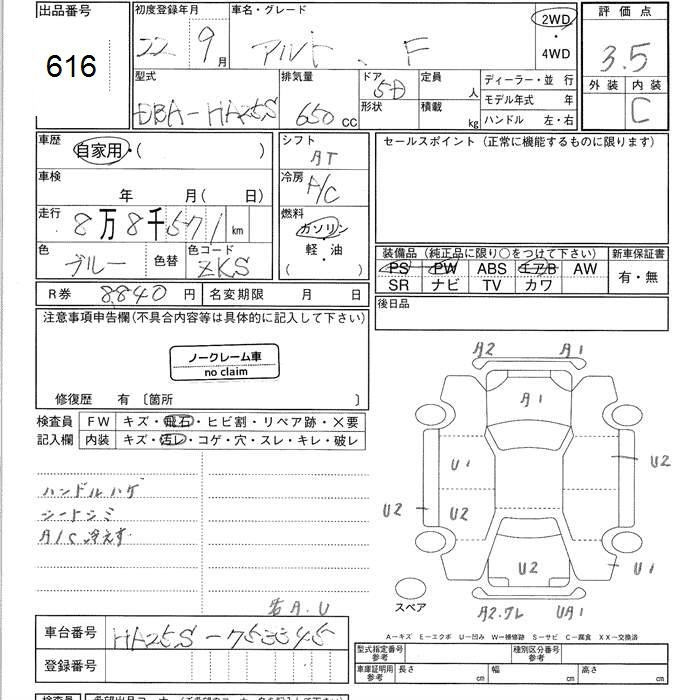 出品番号
616
初度登録年月
22 9月
車名・グレード
アルト、F
2WD
・
4WD
評価点
3.5
外装 内装
C
型式
DBA-HA25S
排気量
650 cc
ドア
5D
形状
定員
人
積載
kg
ディーラー・並 行
モデル年式 年
ハンドル 左・右
車歴
自家用・( )
車検
年 月( 日)
走行
8万8千571 km
色
ブルー
色替
色コード
ZKS
シフト
AT
冷房
A/C
燃料
ガソリン
・
軽・油
( )
セールスポイント(正常に機能するものに限ります)
装備品(純正品に限り○をつけて下さい)
PS PW ABS エアB AW
SR ナビ TV カワ
新車保証書
有・無
後日品
R券 8840円
名変期限 月 日
注意事項申告欄(不具合内容等は具体的に記入して下さい)
ノークレーム車
no claim
修復歴 有〔箇所 〕
検査員
記入欄
FW キズ・飛石・ヒビ割・リペア跡・×要
内装 キズ・汚レ・コゲ・穴・スレ・キレ・破レ
ハンドルハゲ
シートシミ
A/C冷えず
若A.U
A2 A1
A1
U1
U2
U2
U2
U2
U1
A2.アレ UA1
スペア
A-キズ E-エクボ U-凹み W-補修跡 S-サビ C-腐食 XX-交換済
車台番号
HA25S-753345
登録番号
型式指定番号
参考
種別区分番号
参考
車庫証明用
参考
長さ cm
幅 cm
高さ cm